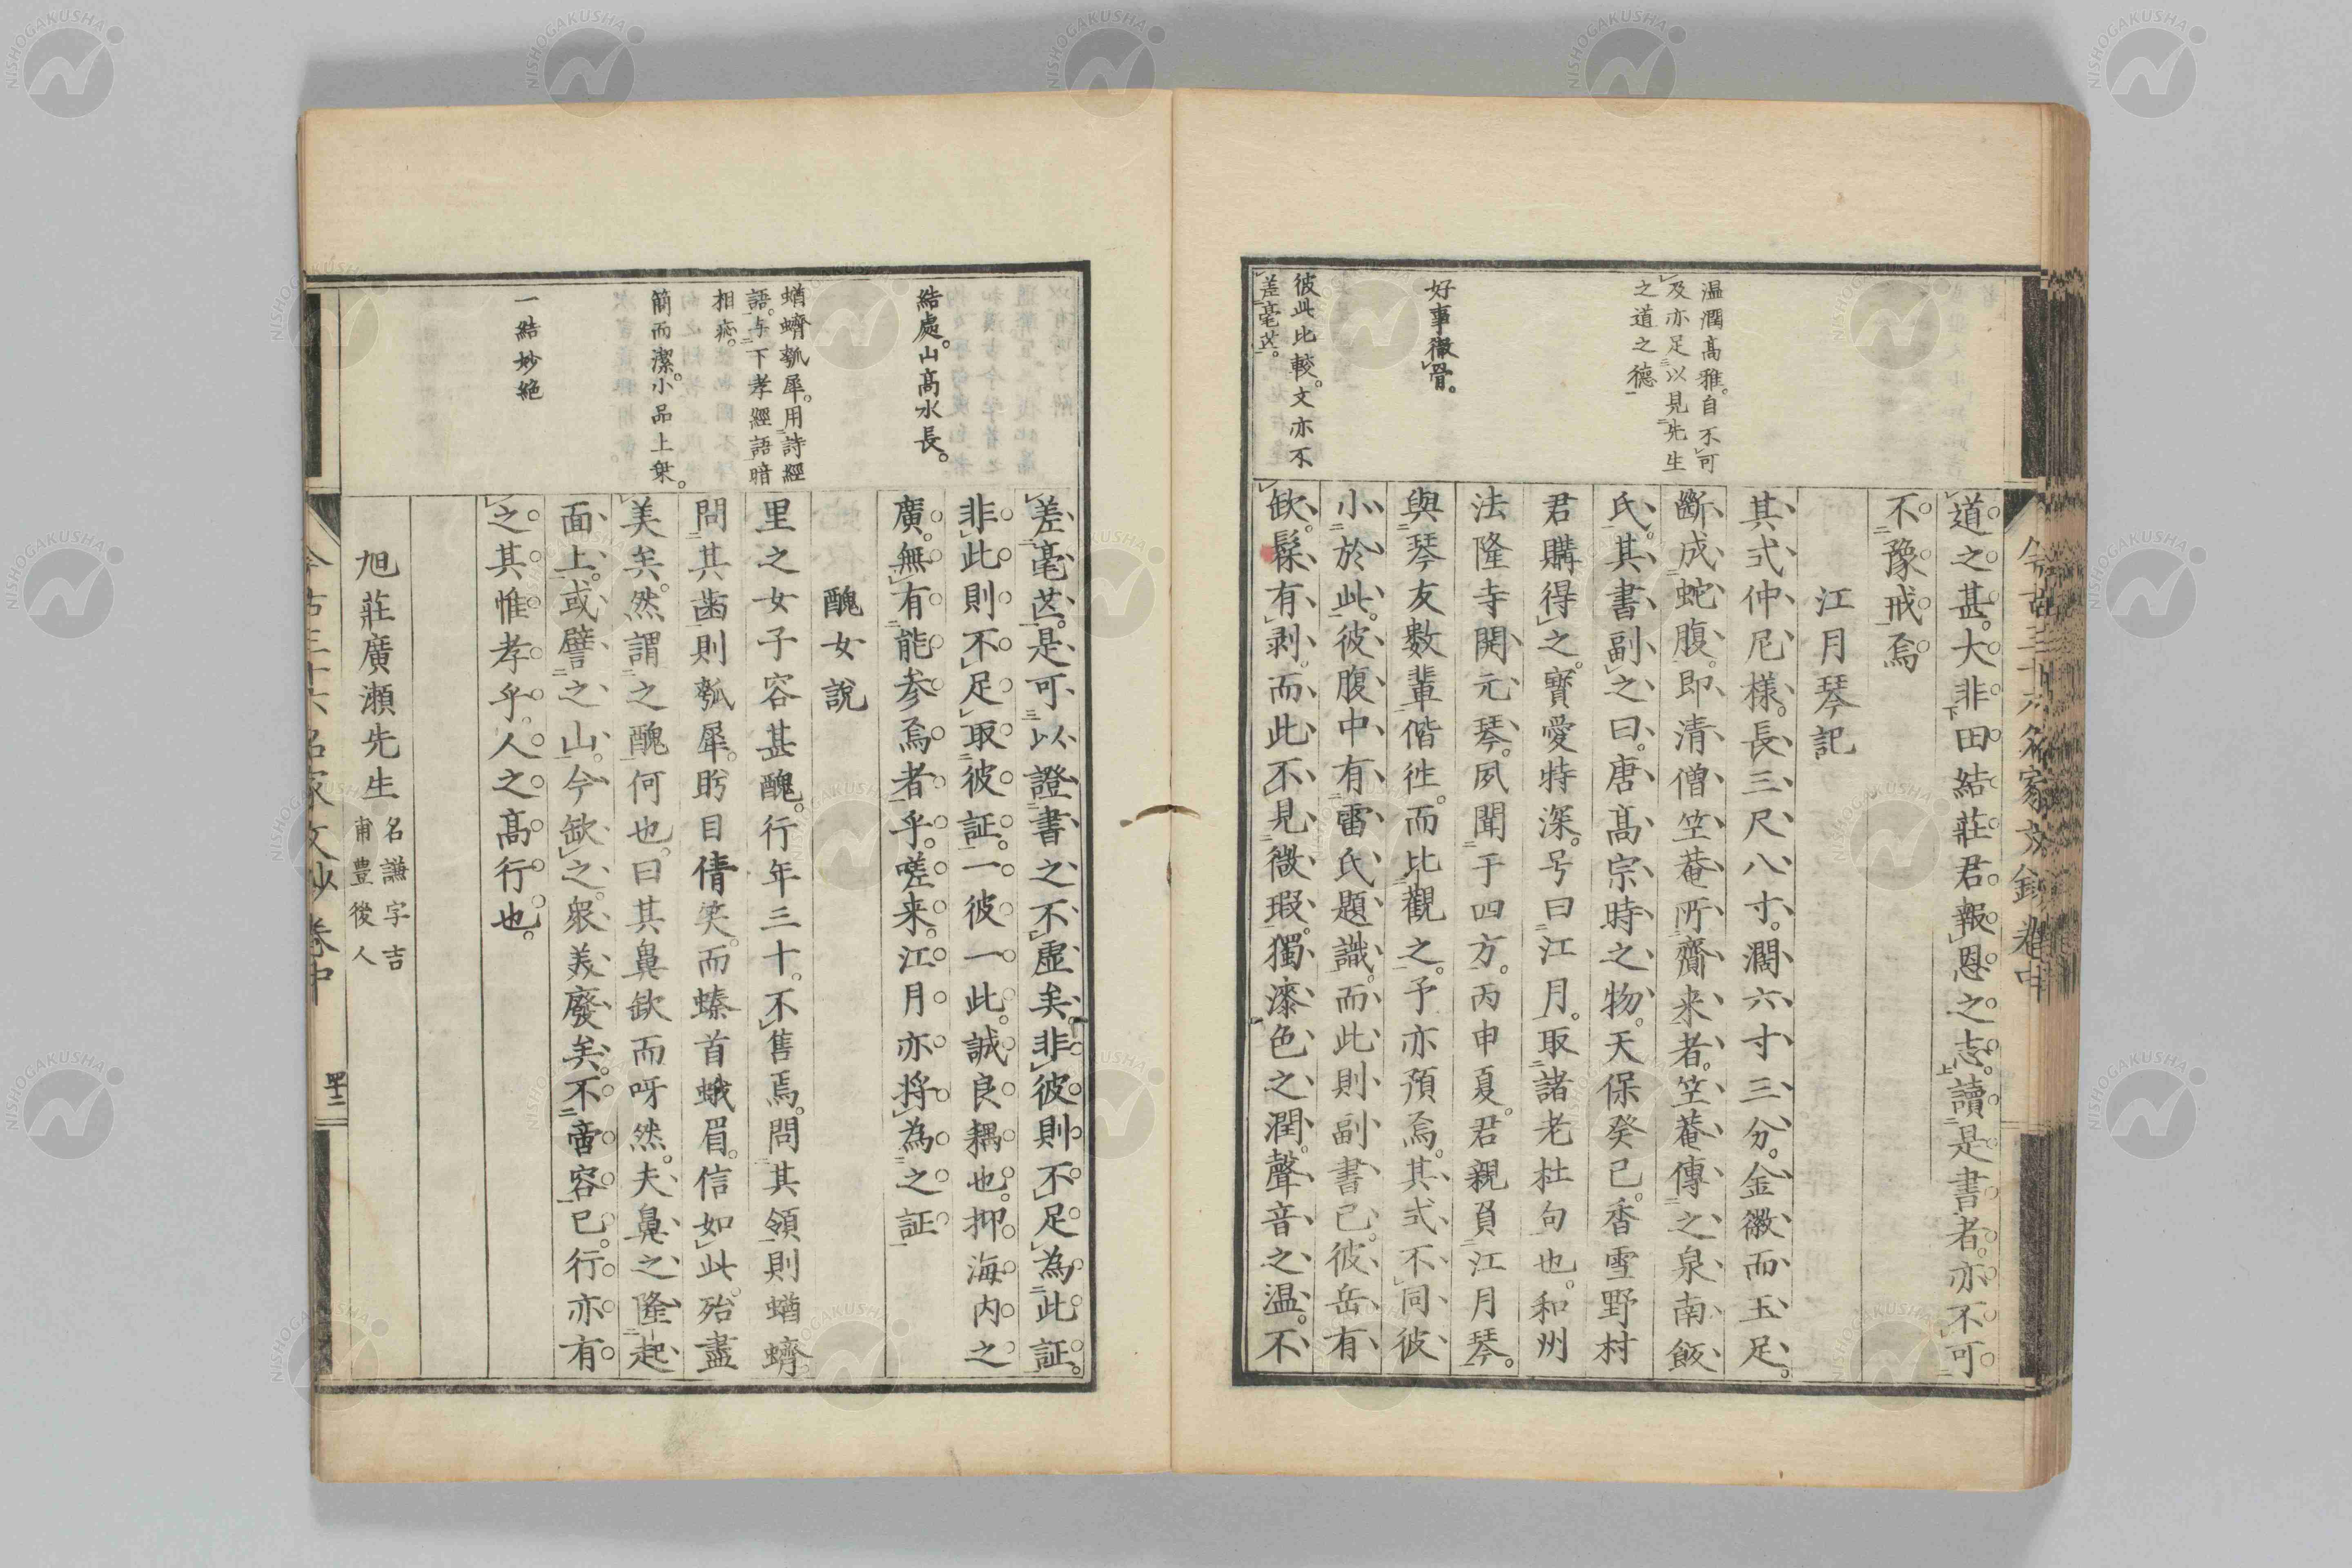 今古三十六名家文鈔卷中
温潤髙雅。自不可
及亦足以見先生
之道之德
好事徹骨。
彼此比較。文亦不
差毫芒。
道之甚。大非田結莊君報恩之志。讀是書者。亦不可
不豫戒焉
江月琴記
其式仲尼樣。長三尺八寸。濶六寸三分。金徽而玉足。
斷成蛇腹。即清僧笠菴所齎来者。笠菴傳之泉南飯
氏。其書副之曰。唐髙宗時之物。天保癸已。香雪野村
君購得之。寳愛特深。号曰江月。取諸老杜句也。和州
法隆寺開元琴。夙聞于四方。丙申夏。君親負江月琴。
與琴友數輩偕徃。而比觀之。予亦預焉。其式不同彼
小於此。彼腹中有雷氏題識。而此則副書已。彼岳有
欽。髹有剥。而此不見微瑕。獨漆色之潤。聲音之温。不
結處。山髙水長。
蝤蠐瓠犀。用詩經
語。与下孝經語暗
相應。
簡而潔。小品上乗。
一結妙絶
差毫芒。是可以證書之不虚矣。非彼則不足為此証。
非此則不足取彼証。一彼一此。誠良耦也。抑海内之
廣。無有能参焉者乎。嗟来。江月亦将為之証
醜女說
里之女子容甚醜。行年三十。不售焉。問其領則蝤蠐
問其齒則瓠犀。盻目倩笑。而螓首蛾眉。信如此。殆盡
美矣。然謂之醜何也。曰其鼻缺而呀然。夫鼻之隆起
面上。或譬之山。今缺之。衆美廢矣。不啻容已。行亦有
之其惟孝乎。人之髙行也。
旭莊廣瀬先生
名謙字吉
甫豊後人
今古三十六名家文鈔卷中
四十二